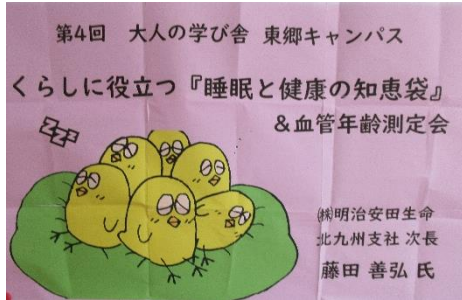 第4回 大人の学び舎 東郷キャンパス
くらしに役立つ『睡眠と健康の知恵袋』
&血管年齢測定会
zzz
㈱明治安田生命
北九州支社 次長
藤田 善弘 氏